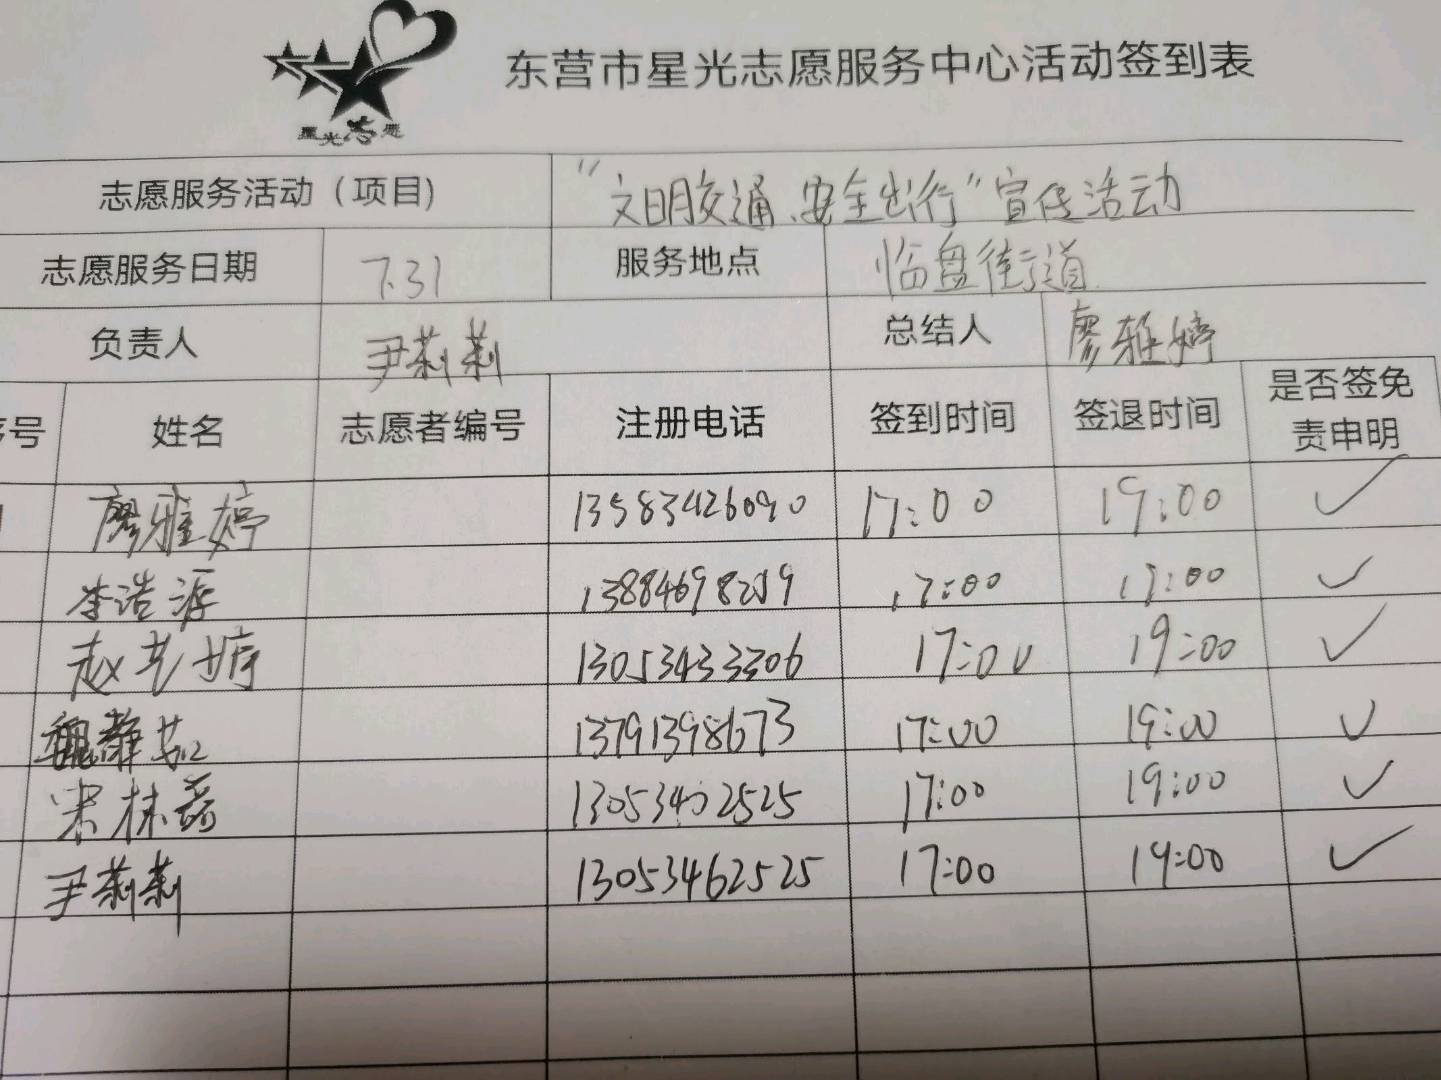 星光志愿
东营市星光志愿服务中心活动签到表
志愿服务活动（项目） “文明交通、安全出行”宣传活动
志愿服务日期 7.31 服务地点 临盘街道
负责人 尹莉莉 总结人 廖雅婷
序号 姓名 志愿者编号 注册电话 签到时间 签退时间 是否签免
责申明
1 廖雅婷 13583426090 17:00 19:00 ✓
李浩源 17:00 ✓
赵艺婷 13053433306 17:00 19:00 ✓
魏静茹 13791398673 17:00 19:00 ✓
宋林磊 13053402525 17:00 19:00 ✓
尹莉莉 13053462525 17:00 19:00 ✓